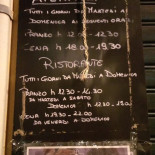 TUTTI I GIORNI DA MARTEDI A
DOMENICA AI SEGUENTI ORARI
PRANZO h 12.30 - 14.30
CENA h 18.00 - 19.30
RISTORANTE
TUTTI I GIORNI DA MARTEDI A DOMENICA
PRANZO h 12.30 - 14.30
DA MARTEDI A SABATO
DOMENICA h 12.30 -
CENA h 19.30 - 22.00
DA VENERDI A DOMENICA